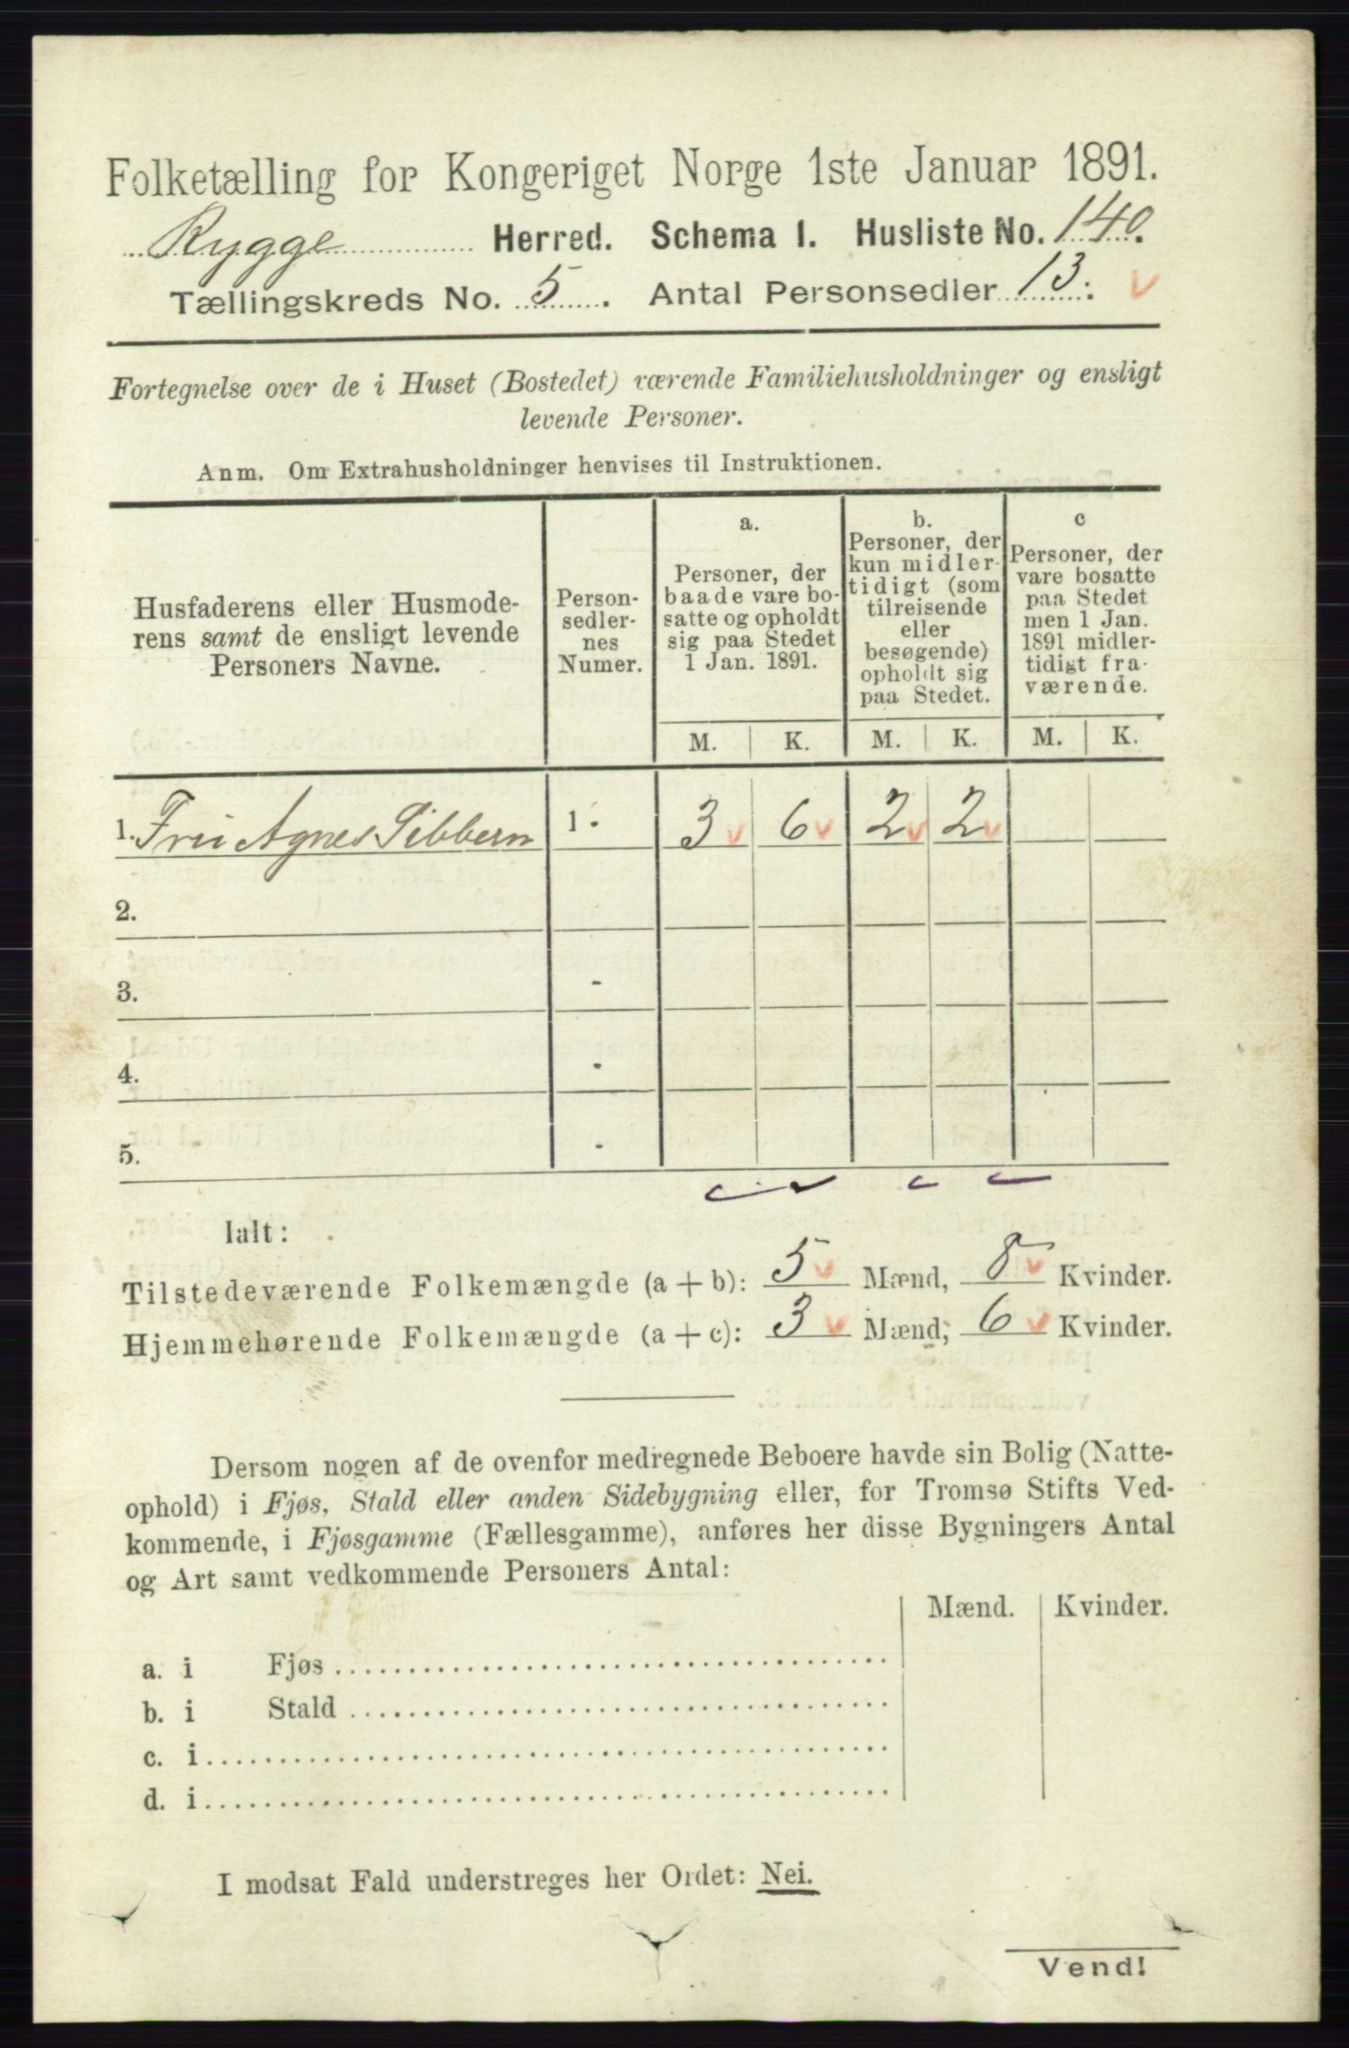 Folketælling for Kongeriget Norge 1ste Januar 1891.
Rygge Herred. Schema I. Husliste No. 140.
Tællingskreds No. 5. Antal Personsedler 13.
Fortegnelse over de i Huset (Bostedet) værende Familiehusholdninger og ensligt
levende Personer.
Anm. Om Extrahusholdninger henvises til Instruktionen.
Husfaderens eller Husmode-
rens samt de ensligt levende
Personers Navne.
Person-
sedler-
nes
Numer.
a.
Personer, der
baade vare bo-
satte og opholdt
sig paa Stedet
1 Jan. 1891.
b.
Personer, der
kun midler-
tidigt (som
tilreisende
eller
besøgende)
opholdt sig
paa Stedet.
c
Personer, der
vare bosatte
paa Stedet
men 1 Jan.
1891 midler-
tidigt fra-
værende.
M. K. M. K. M. K.
1. Fru Agnes Sibbern 1 - 3 6 2 2
2.
3. -
4. -
5. -
Ialt:
Tilstedeværende Folkemængde (a + b): 5 Mænd, 8 Kvinder.
Hjemmehørende Folkemængde (a + c): 3 Mænd, 6 Kvinder.
Dersom nogen af de ovenfor medregnede Beboere havde sin Bolig (Natte-
ophold) i Fjøs, Stald eller anden Sidebygning eller, for Tromsø Stifts Ved-
kommende, i Fjøsgamme (Fællesgamme), anføres her disse Bygningers Antal
og Art samt vedkommende Personers Antal:
Mænd. Kvinder.
a. i Fjøs
b. i Stald
c. i
d. i
I modsat Fald understreges her Ordet: Nei.
Vend!